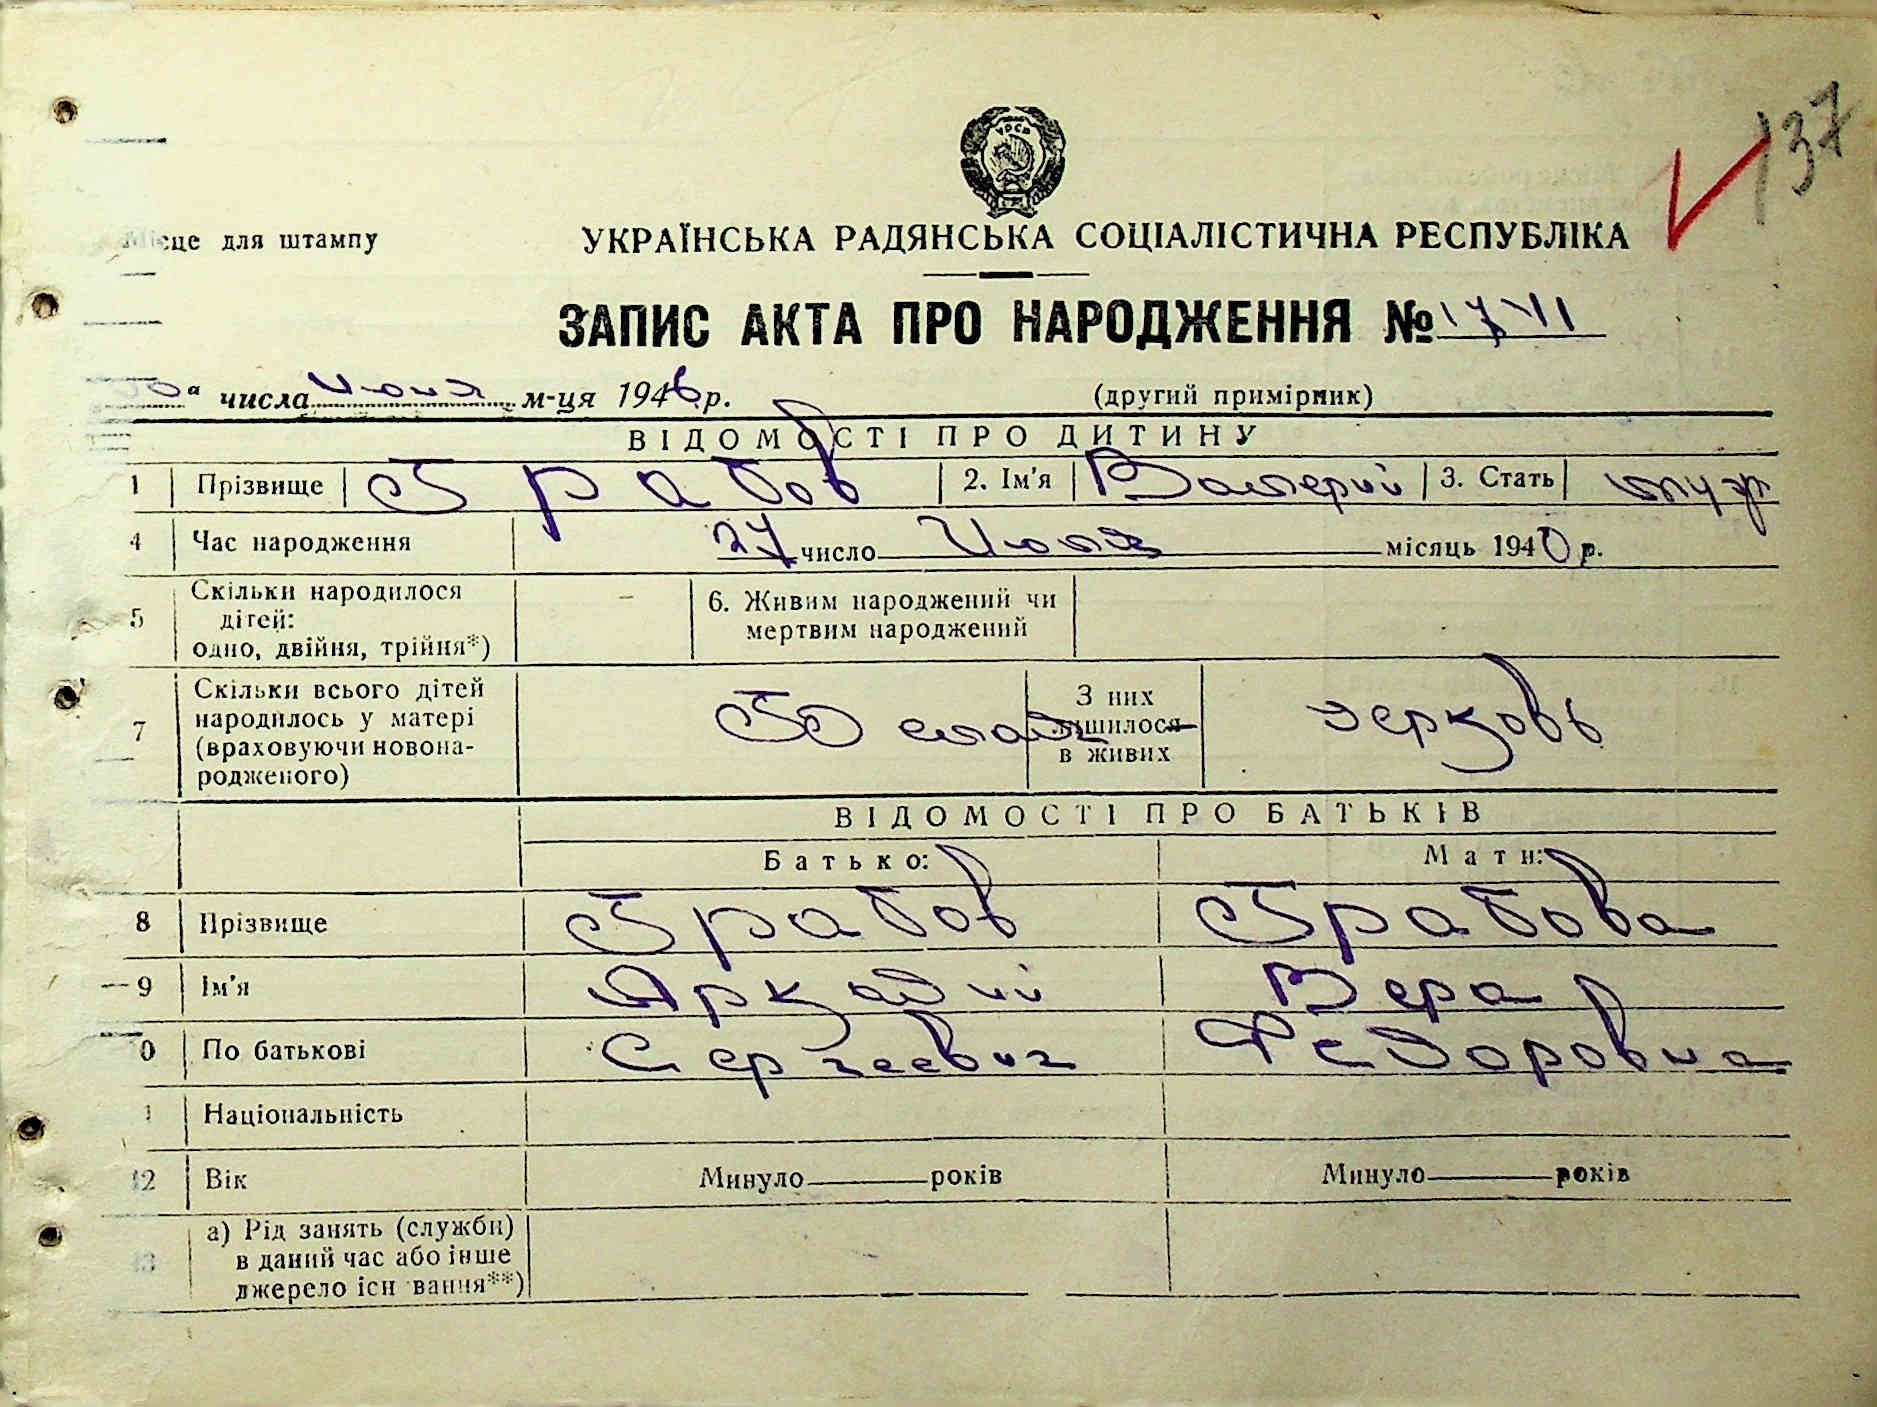 137
УРСР
Місце для штампу
УКРАЇНСЬКА РАДЯНСЬКА СОЦІАЛІСТИЧНА РЕСПУБЛІКА
ЗАПИС АКТА ПРО НАРОДЖЕННЯ №
числа Июня м-ця 1946 р. (другий примірник)
ВІДОМОСТІ ПРО ДИТИНУ
1 Прізвище Грабов 2. Ім'я Валерий 3. Стать муж
4 Час народження 27 число місяць 1940 р.
5 Скільки народилося дітей: одно, двійня, трійня*) - 6. Живим народжений чи мертвим народжений
7 Скільки всього дітей народилось у матері (враховуючи новонародженого) З них лишилося в живих
ВІДОМОСТІ ПРО БАТЬКІВ
Батько: Мати:
8 Прізвище Грабов Грабова
9 Ім'я Аркадий Вера
0 По батькові Сергеевич Федоровна
1 Національність
12 Вік Минуло років Минуло років
13 а) Рід занять (служби) в даний час або інше джерело існ вання**)